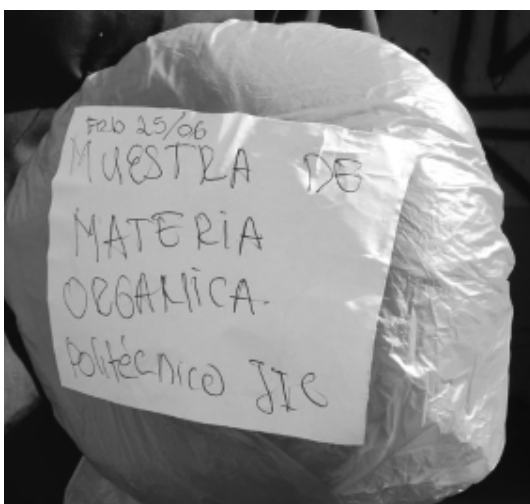 Feb 25/06
MUESTRA DE
MATERIA
ORGANICA.
Politécnico JIC